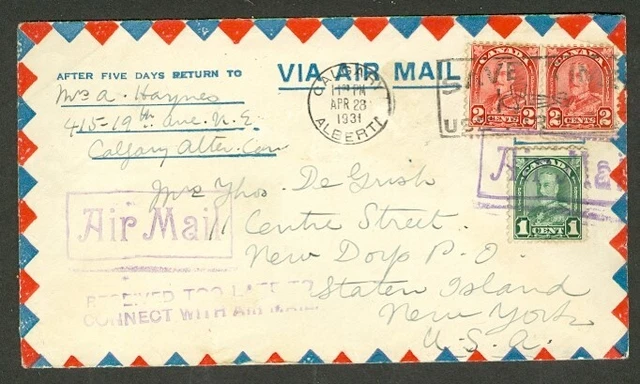 AFTER FIVE DAYS RETURN TO
Mrs A. Haynes
415-19th Ave. N.E.
Calgary Alta. Can
VIA AIR MAIL
CALGARY
PM
APR 28
1931
ALBERTA
CANADA
2 CENTS 2
CANADA
2 CENTS 2
CANADA
1 CENT 1
Air Mail
Air Ma
Mr Thos. De Grish
11 Centre Street.
New Dorp P.O.
Staten Island
New York
U.S.A.
RECEIVED TOO LATE TO
CONNECT WITH AIR MAIL